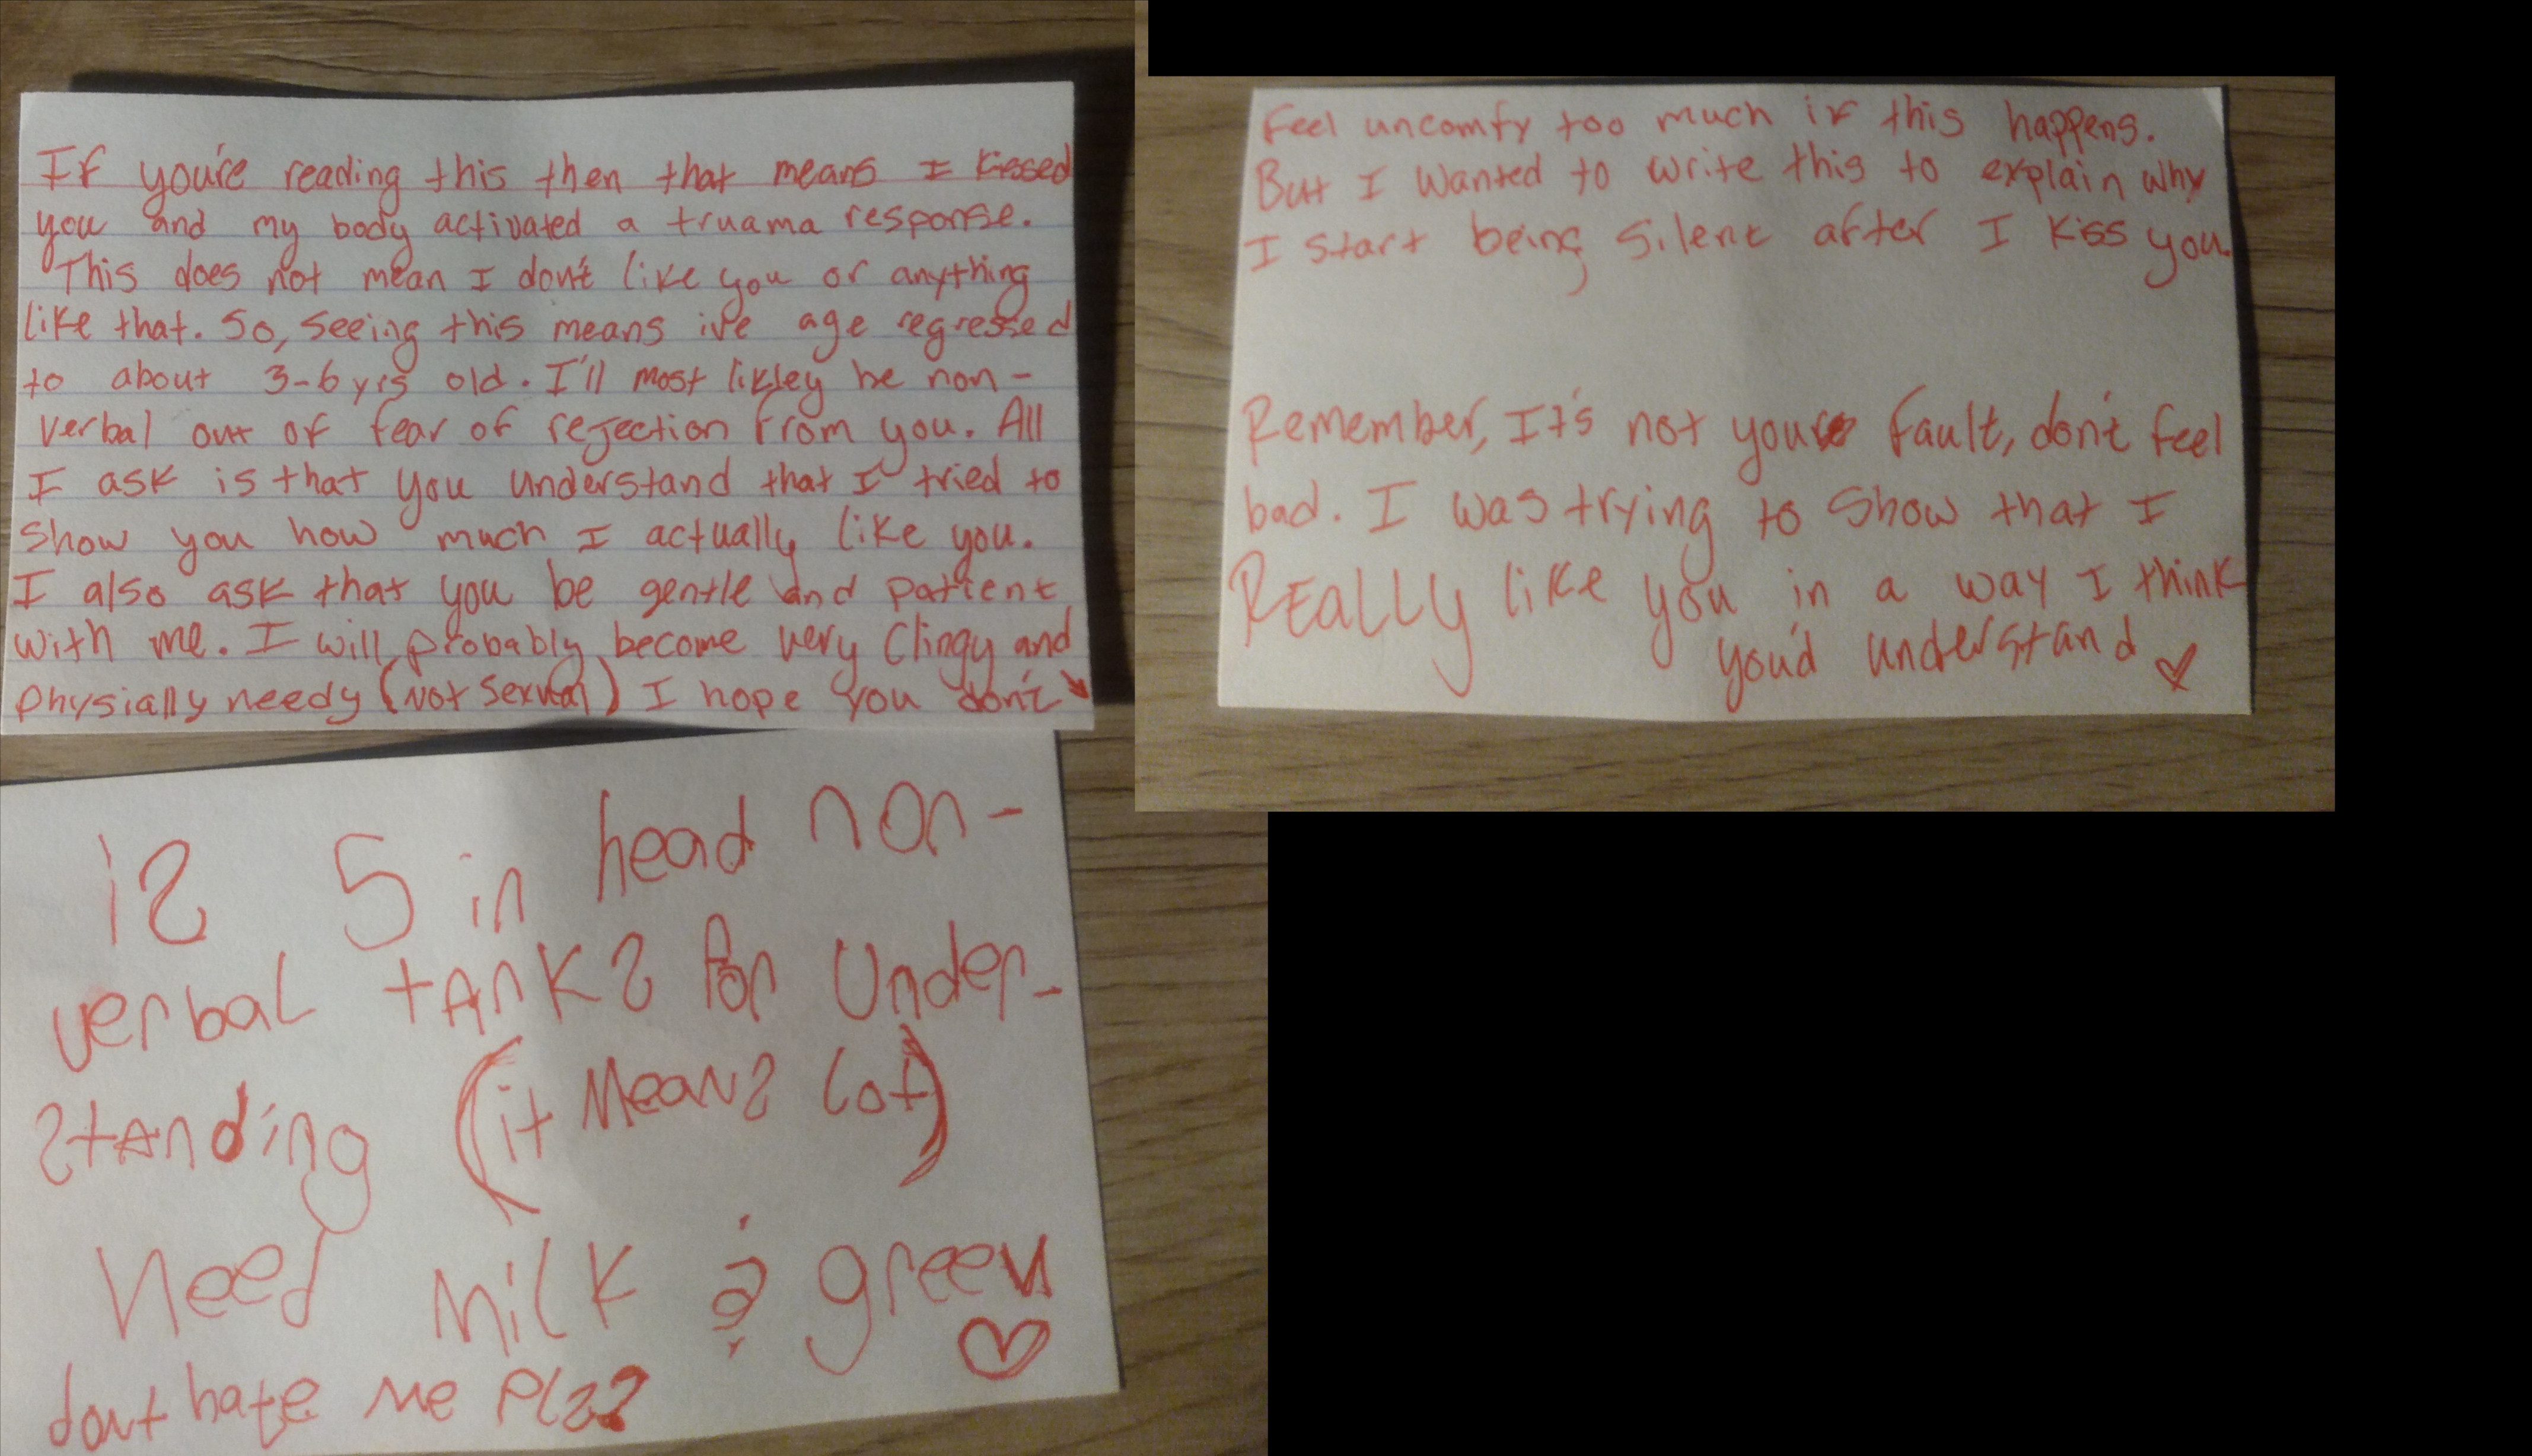 If you're reading this then that means I kissed
you and my body activated a truama response.
This does not mean I don't like you or anything
like that. So, seeing this means ive age regressed
to about 3-6 yrs old. I'll most likley be non-
verbal out of fear of rejection from you. All
I ask is that you understand that I tried to
show you how much I actually like you.
I also ask that you be gentle and patient
with me. I will probably become very clingy and
physially needy (not sexual) I hope you don't
feel uncomfy too much if this happens.
But I wanted to write this to explain why
I start being silent after I kiss you.
Remember, It's not your fault, don't feel
bad. I was trying to show that I
REALLY like you in a way I think
you'd understand
is 5 in head non-
verbal tAnks for under-
stAnding (it means lot)
need milk & green
dont hate me plz?